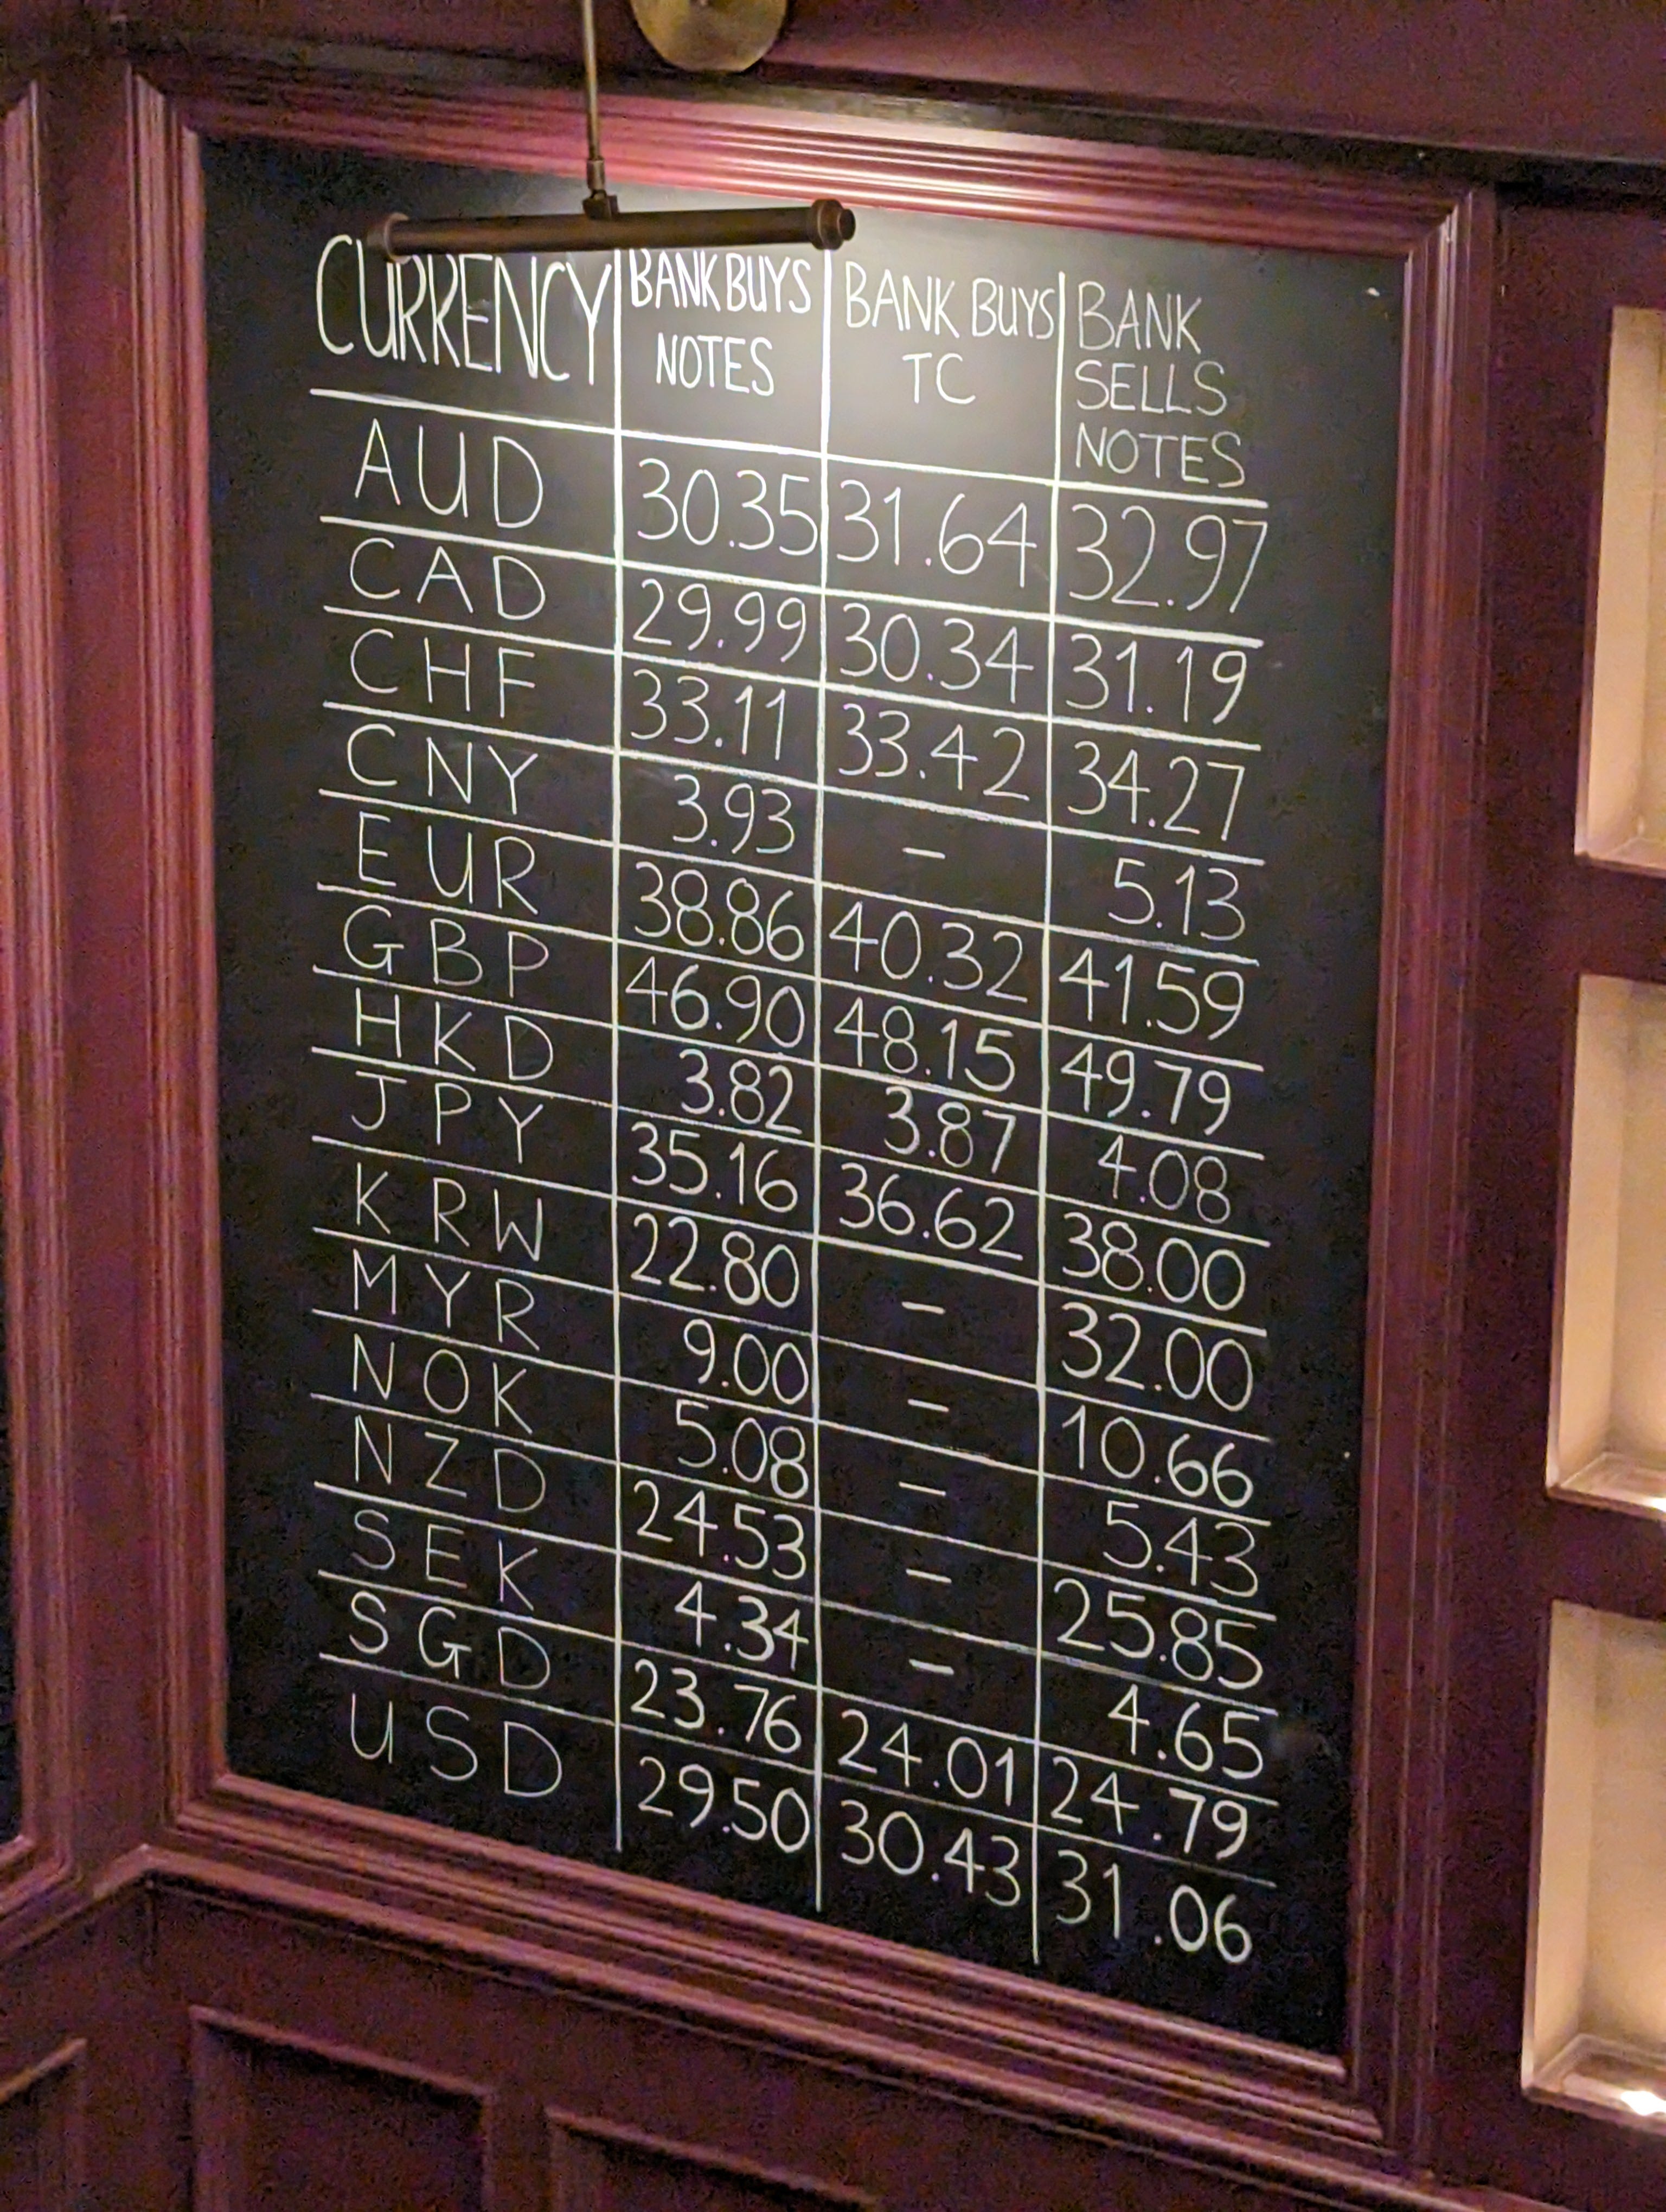 CURRENCY BANK BUYS NOTES BANK BUYS TC BANK SELLS NOTES
AUD 30.35 31.64 32.97
CAD 29.99 30.34 31.19
CHF 33.11 33.42 34.27
CNY 3.93 – 5.13
EUR 38.86 40.32 41.59
GBP 46.90 48.15 49.79
HKD 3.82 3.87 4.08
JPY 35.16 36.62 38.00
KRW 22.80 – 32.00
MYR 9.00 – 10.66
NOK 5.08 – 5.43
NZD 24.53 – 25.85
SEK 4.34 – 4.65
SGD 23.76 24.01 24.79
USD 29.50 30.43 31.06